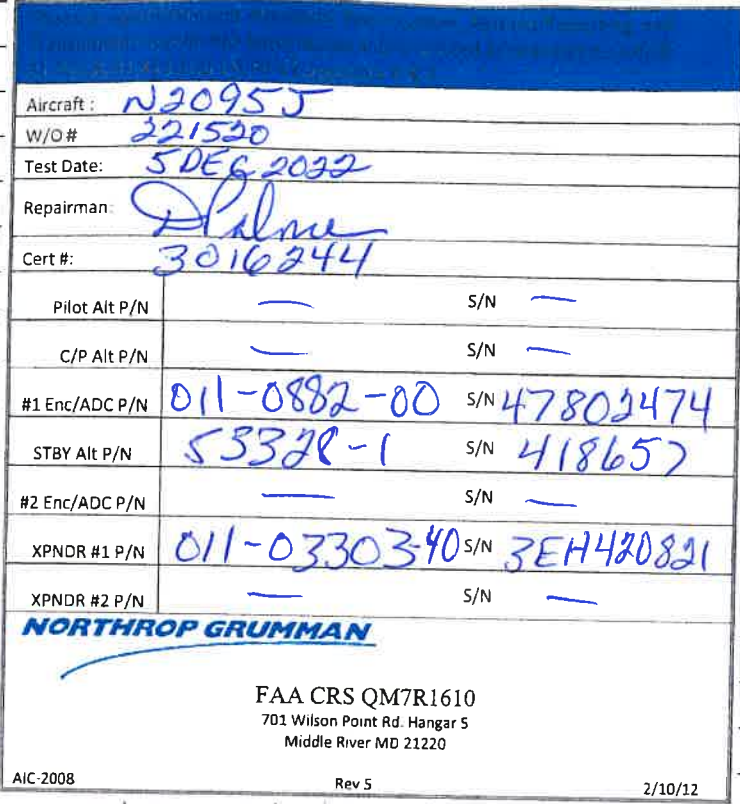 Aircraft : N2095J
W/O# 221520
Test Date: 5 DEC 2022
Repairman: DPalmer
Cert #: 3016244
Pilot Alt P/N — S/N —
C/P Alt P/N — S/N —
#1 Enc/ADC P/N 011-0882-00 S/N 47802474
STBY Alt P/N 53328-1 S/N 418657
#2 Enc/ADC P/N — S/N —
XPNDR #1 P/N 011-03303-40 S/N 3EH420821
XPNDR #2 P/N — S/N —
NORTHROP GRUMMAN
FAA CRS QM7R1610
701 Wilson Point Rd. Hangar 5
Middle River MD 21220
AIC-2008 Rev 5 2/10/12